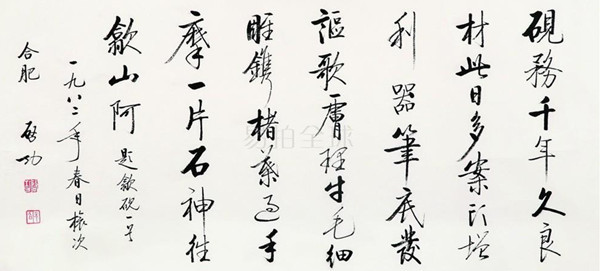 硯務千年久良
材此日多案頭增
利器筆底發
謳歌膚理牛毛細
雕鐫楮葉過手
摩一片石神往
歙山阿 題歙硯一首
一九八二年春日旅次
合肥 啟功
易拍全球